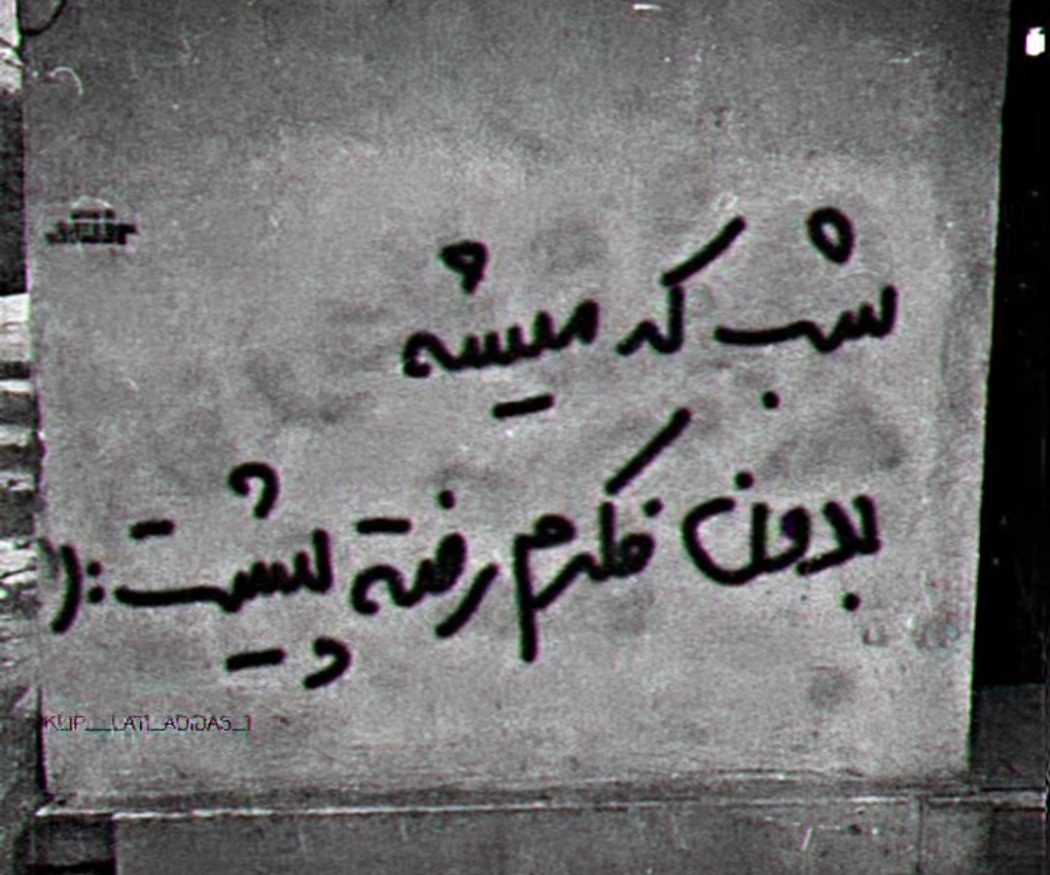 شب که میشه
بدون فکرم رفته پیشت :(
KLIP__LATI_ADIDAS_1